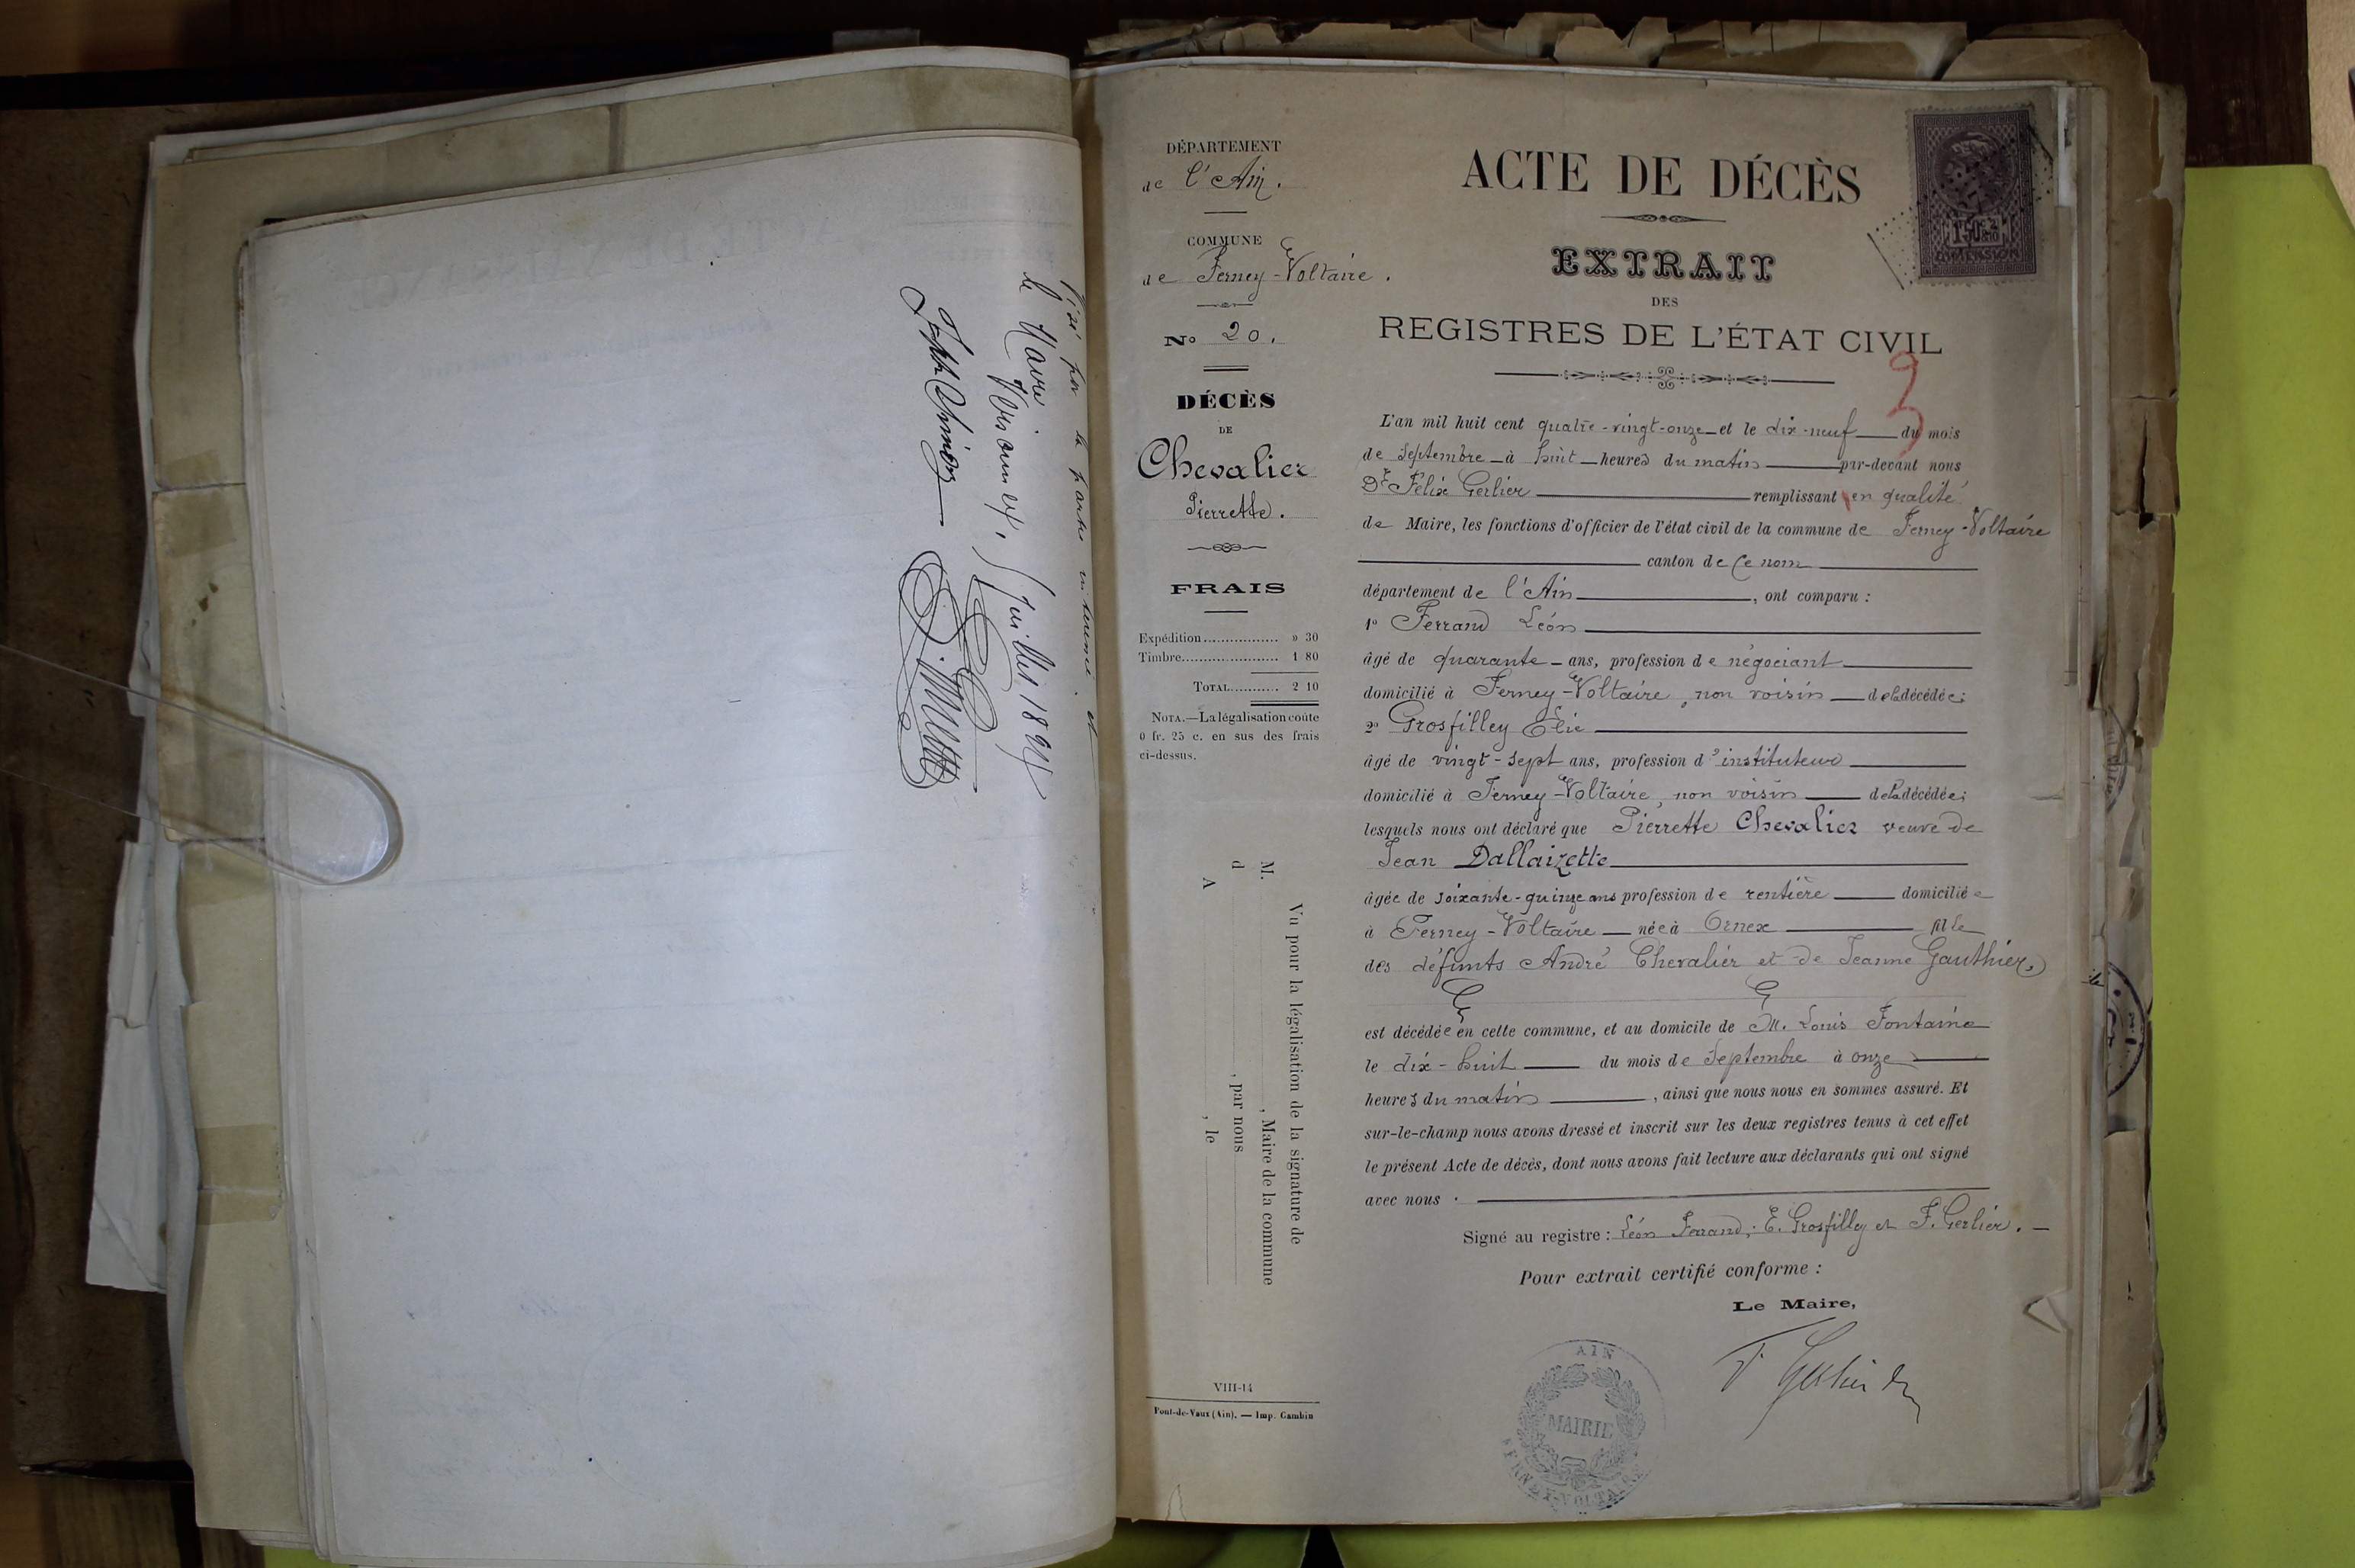 Visé par la partie
le Maire
Juillet 189
DÉPARTEMENT
de l'Ain.
COMMUNE
de Ferney-Voltaire.
No 20.
DÉCÈS
DE
Chevalier
Pierrette.
FRAIS
Expédition................ » 30
Timbre..................... 1 80
TOTAL........... 2 10
NOTA.—La légalisation coûte
0 fr. 25 c. en sus des frais
ci-dessus.
Vu pour la légalisation de la signature de
M. , Maire de la commune
d , par nous
A , le
VIII-14
Pont-de-Vaux (Ain). — Imp. Gambin
ACTE DE DÉCÈS
1F50 2/10
DIMENSION
EXTRAIT
DES
REGISTRES DE L'ÉTAT CIVIL
L'an mil huit cent quatre-vingt-onze et le dix-neuf du mois
de Septembre à huit heures du matin par-devant nous
Dr Félix Gerlier remplissant en qualité
de Maire, les fonctions d'officier de l'état civil de la commune de Ferney-Voltaire
canton de Ce nom
département de l'Ain, ont comparu :
1º Ferrand Léon
âgé de quarante ans, profession de négociant
domicilié à Ferney-Voltaire, non voisin de la décédée;
2º Grosfilley Élie
âgé de vingt-sept ans, profession d'instituteur
domicilié à Ferney-Voltaire, non voisin de la décédée;
lesquels nous ont déclaré que Pierrette Chevalier veuve de
Jean Dallaizette
âgée de soixante-quinze ans profession de rentière domiciliée
à Ferney-Voltaire née à Ornex fille
des défunts André Chevalier et de Jeanne Gauthier,
est décédée en cette commune, et au domicile de M. Louis Fontaine
le dix-huit du mois de Septembre à onze
heures du matin, ainsi que nous nous en sommes assuré. Et
sur-le-champ nous avons dressé et inscrit sur les deux registres tenus à cet effet
le présent Acte de décès, dont nous avons fait lecture aux déclarants qui ont signé
avec nous.
Signé au registre : Léon Ferrand; E. Grosfilley et F. Gerlier. —
Pour extrait certifié conforme :
Le Maire,
F Gerlier
AIN
MAIRIE
FERNEY-VOLTAIRE